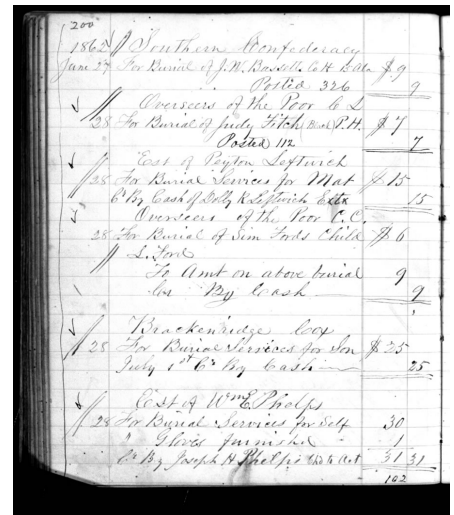 200
1862 Southern Confederacy
June 27 For Burial of J.W. Bassett Co H 5 Ala $9
Posted 326 9
Overseers of the Poor C L
28 For Burial of Judy Fitch P.H. $7
Posted 112 7
Est of Peyton Leftwich
28 For Burial Services for Mat $15
Cr By Cash of Dolly K Leftwich Extx 15
Overseers of the Poor C.C.
28 For Burial of Jim Fords Child $6
S. Ford
To Amt on above burial 9
Cr By Cash 9
Brackenridge Cox
28 For Burial Services for Son $25
July 1st Cr By Cash 25
Est of Wm E Phelps
28 For Burial Services for Self 30
" Gloves furnished 1
Cr By Joseph H Phelps 31 31
102